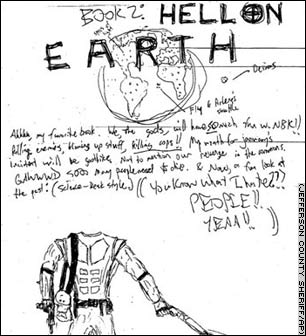 BOOK 2: HELL ON
EARTH
Deimos
Fly & Arlenes
Ahhh, my favorite book. We, the gods, will have so much fun w NBK!!
Killing enemies, blowing up stuff, killing cops!! My wrath for january's
incident will be godlike. Not to mention our revenge in the commons.
GAWWWD sooo many people need to die. & Now, a fun look at
the past: (science-desk style) ((You know what I hate???
PEOPLE!!
YEAA!!))
(JEFFERSON COUNTY SHERIFF/AP